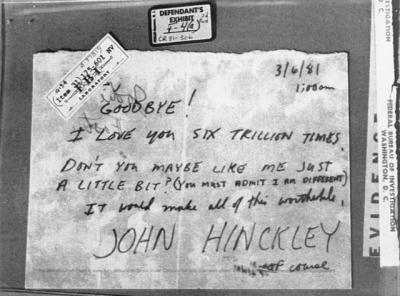 DEFENDANT'S
EXHIBIT
CR 81-306
FBI
LABORATORY
3/6/81
1:00am
GOODBYE!
I LOVE YOU SIX TRILLION TIMES.
DON'T YOU MAYBE LIKE ME JUST
A LITTLE BIT? (YOU MUST ADMIT I AM DIFFERENT)
IT would make all of this worthwhile.
JOHN HINCKLEY
of course
FEDERAL BUREAU OF INVESTIGATION
WASHINGTON, D. C.
EVIDENCE